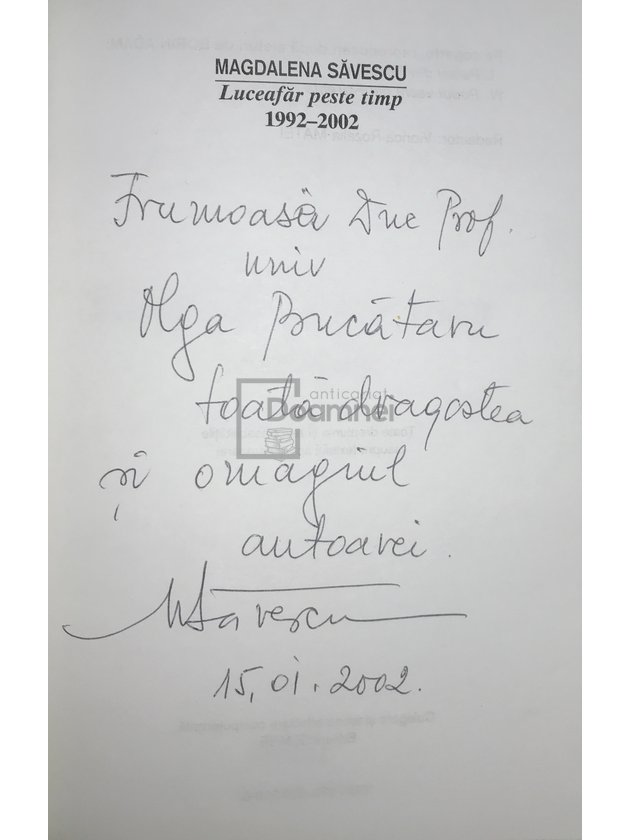 MAGDALENA SĂVESCU
Luceafăr peste timp
1992–2002
Frumoasă Dne Prof.
univ
Olga Bucătaru
toată dragostea
anticariat
Doamnei
și omagiul
autoarei.
MSăvescu
15.01.2002.